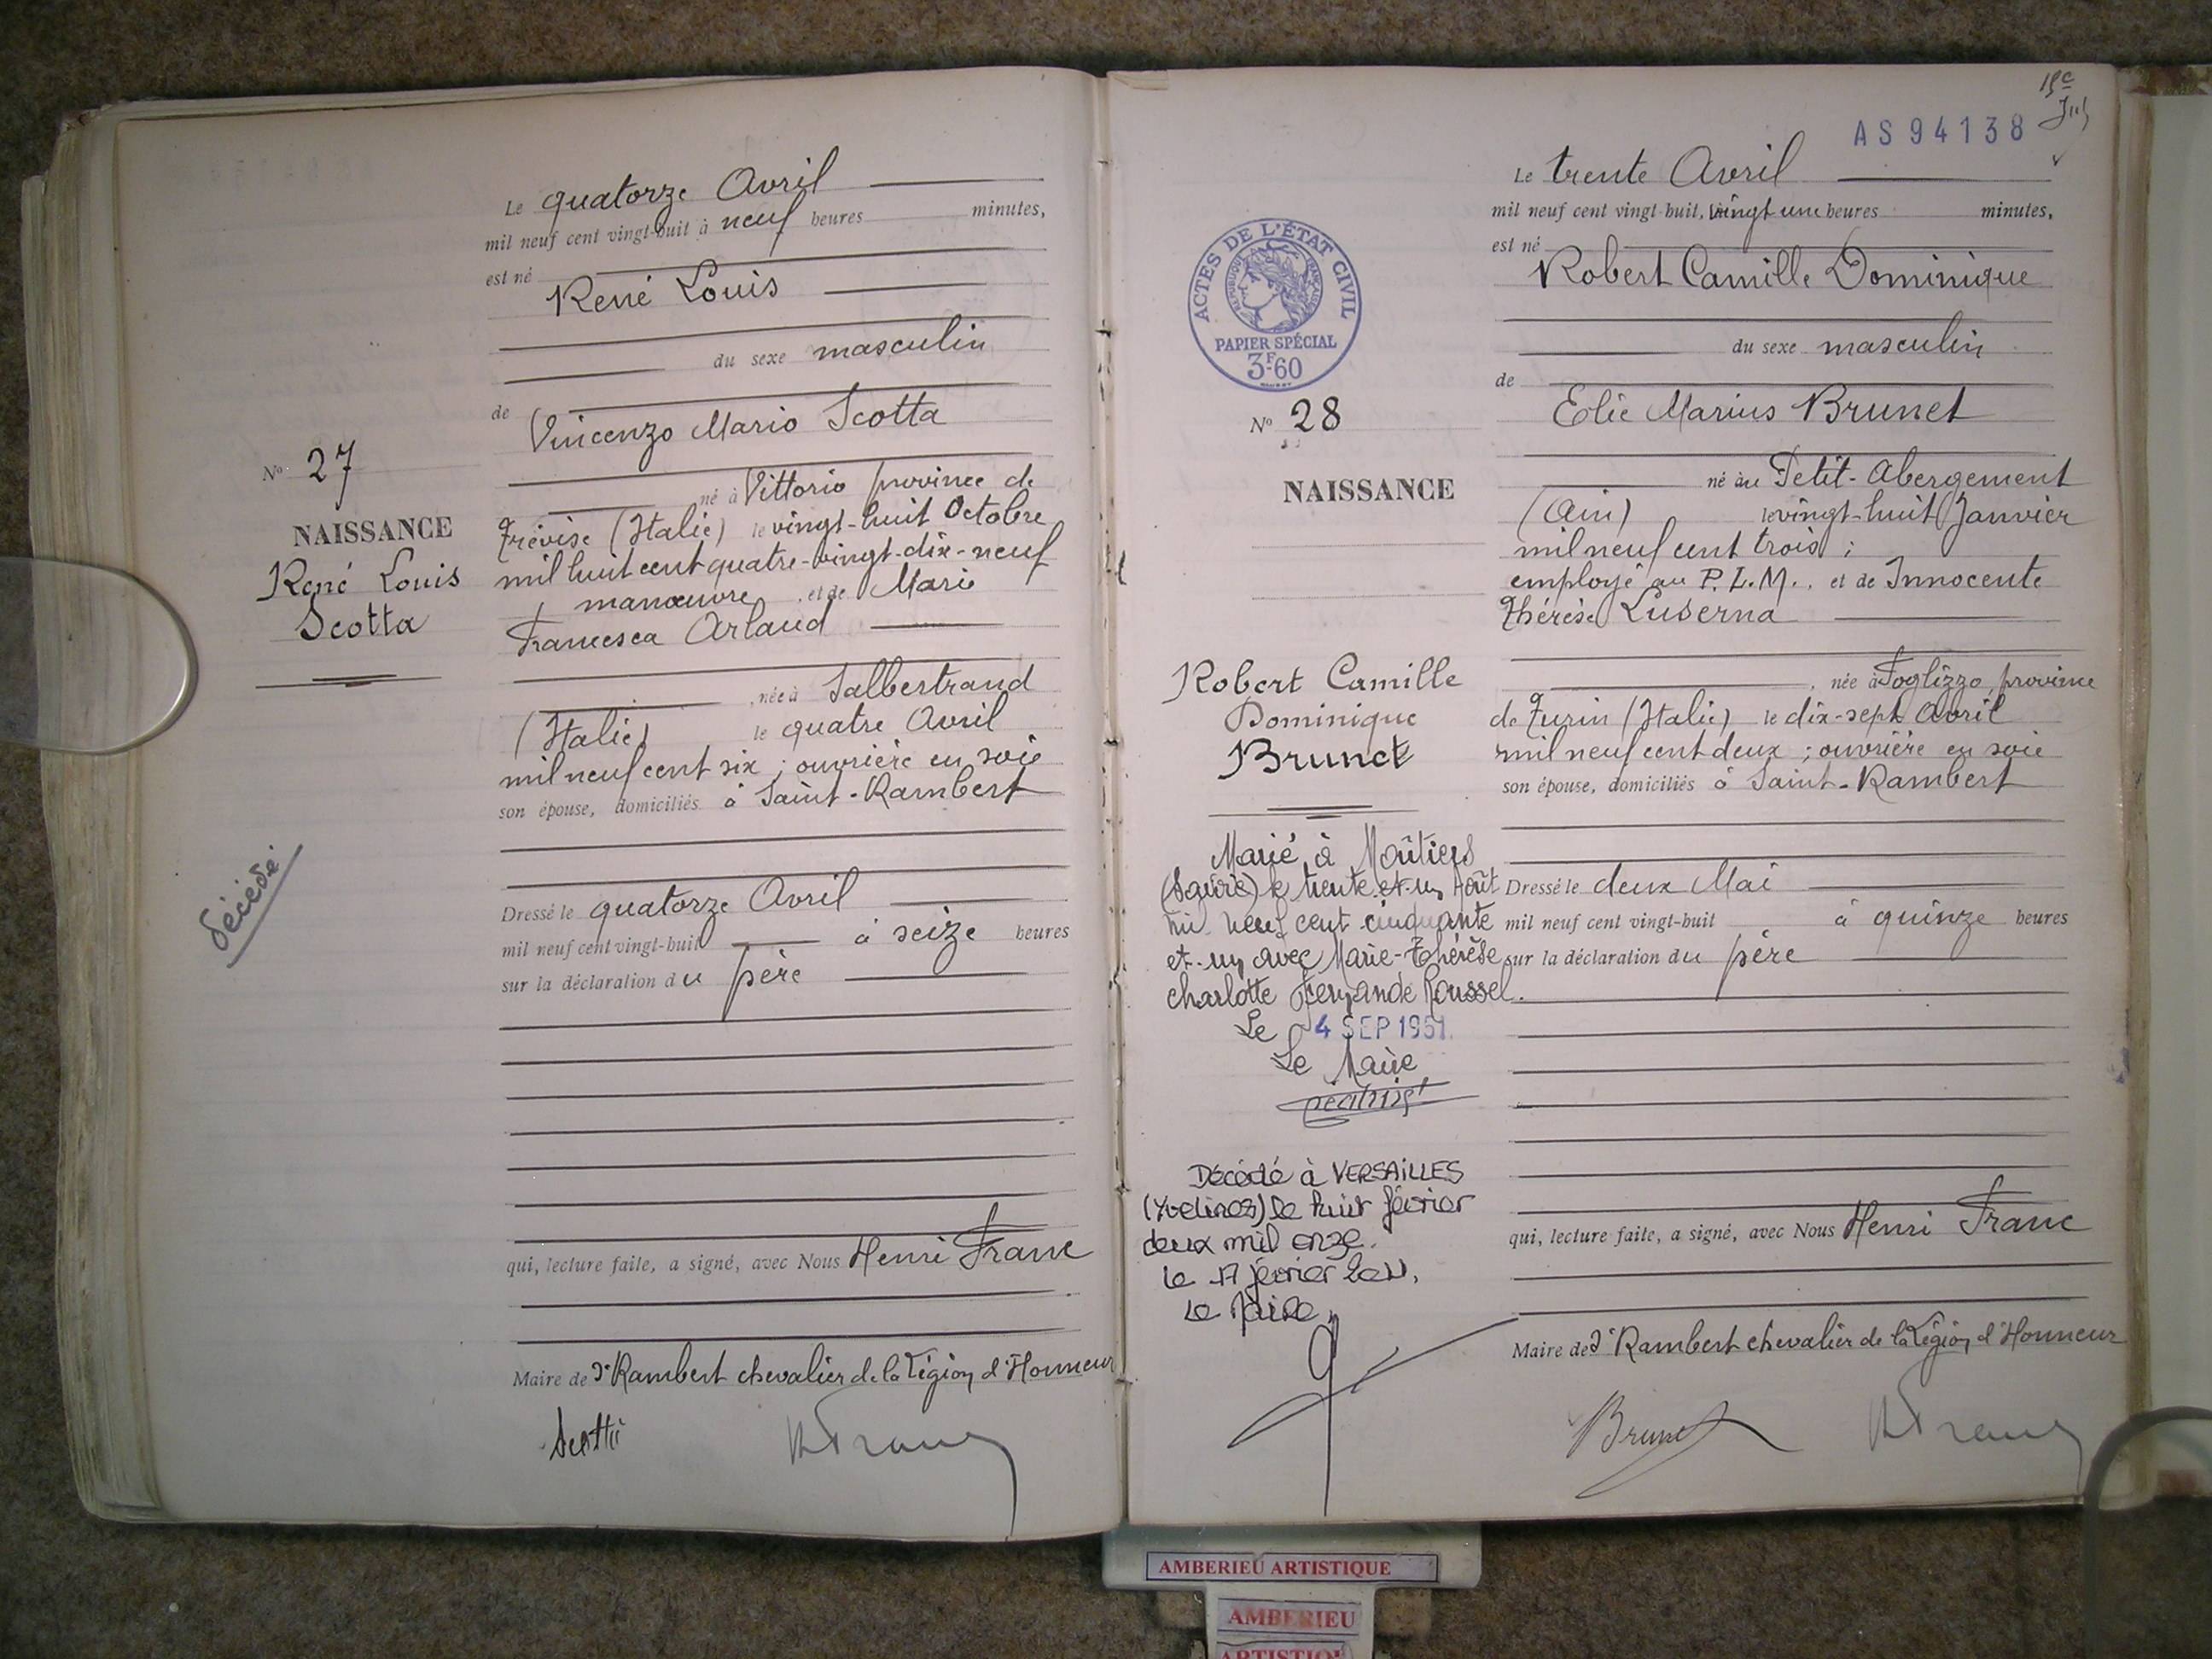 Le quatorze Avril
mil neuf cent vingt-huit à neuf heures minutes,
est né
René Louis
du sexe masculin
de
Vincenzo Mario Scotta
né à Vittorio province de
Trévise (Italie) le vingt-huit Octobre
mil huit cent quatre-vingt-dix-neuf
manœuvre, et de Marie
Francesca Arlaud
née à Salbertrand
(Italie) le quatre Avril
mil neuf cent six ; ouvrière en soie
son épouse, domiciliés à Saint-Rambert
Dressé le quatorze Avril
mil neuf cent vingt-huit à seize heures
sur la déclaration du père
qui, lecture faite, a signé, avec Nous Henri Franc
Maire de St Rambert chevalier de la Légion d'Honneur
HFranc
No 27
NAISSANCE
René Louis
Scotta
décédé
AS 94138
Le trente Avril
mil neuf cent vingt-huit, vingt une heures minutes,
est né
Robert Camille Dominique
du sexe masculin
de
Elie Marius Brunet
né au Petit-Abergement
(Ain) le vingt-huit Janvier
mil neuf cent trois ;
employé au P. L. M., et de Innocente
Thérèse Luserna
née à Foglizzo, province
de Turin (Italie) le dix-sept Avril
mil neuf cent deux ; ouvrière en soie
son épouse, domiciliés à Saint-Rambert
Dressé le deux Mai
mil neuf cent vingt-huit à quinze heures
sur la déclaration du père
qui, lecture faite, a signé, avec Nous Henri Franc
Maire de St Rambert chevalier de la Légion d'Honneur
Brunet HFranc
ACTES DE L'ÉTAT CIVIL
RÉPUBLIQUE FRANÇAISE
PAPIER SPÉCIAL
3F60
No 28
NAISSANCE
Robert Camille
Dominique
Brunet
Marié à Moûtiers
(Savoie) le trente-et-un Août
mil neuf cent cinquante
et-un avec Marie-Thérèse
Charlotte Fernande Roussel.
Le 4 SEP 1951
Le Maire
Décédé à VERSAILLES
(Yvelines) le huit février
deux mil onze.
Le 17 février 2011.
Le Maire,
AMBERIEU ARTISTIQUE
AMBERIEU
ARTISTIQUE